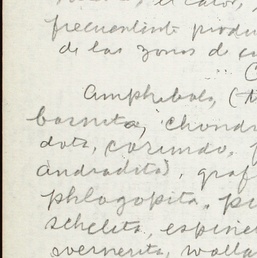 el calor,
frecuentinte produ
de las zonas de c
... (
Amphibols, (t
bornita, chondr
dota, corindo,
andradita), graf
phlogopita, pi
schelita, espine
wernerita, wolla